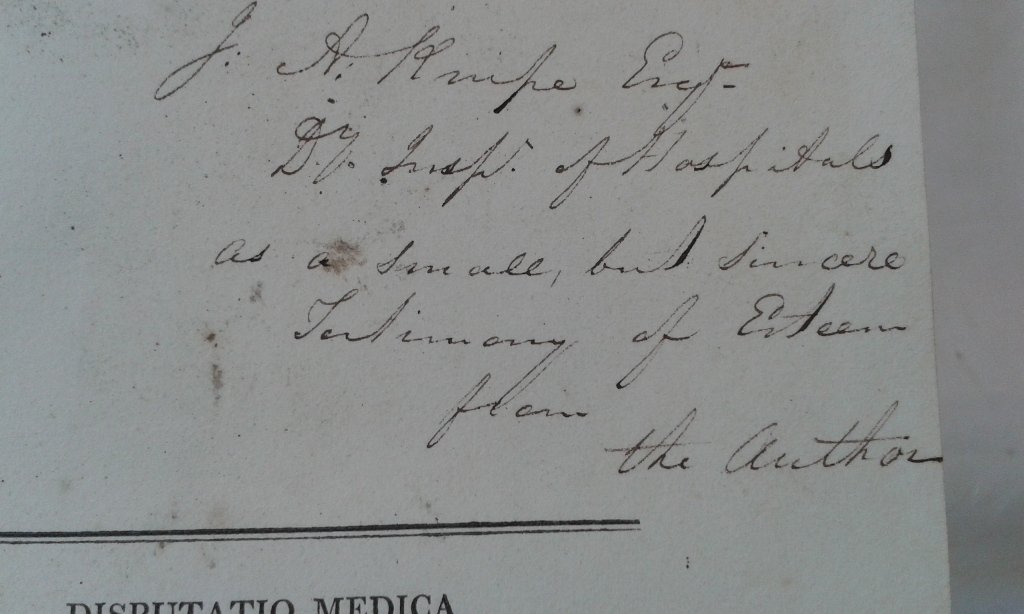 J. A. Knipe Esqr.
Dy. Insp. of Hospitals
as a small, but sincere
Testimony of Esteem
from
the Author
DISPUTATIO MEDICA